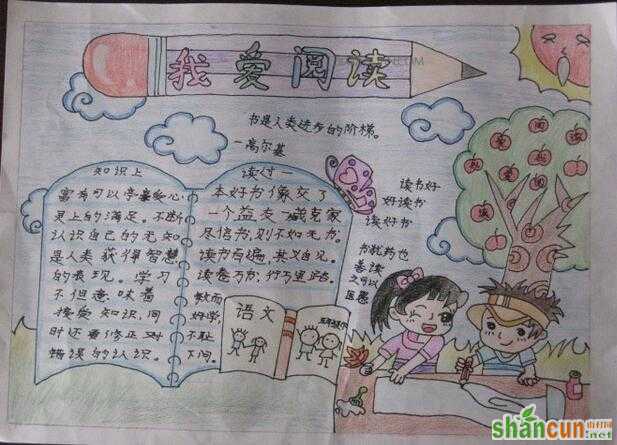 我爱阅读
书是人类进步的阶梯。
—高尔基
知识上
富有可以享受心
灵上的满足。不断
认识自己的无知
是人类获得智慧
的表现。学习
不但意味着
接受知识,同
时还要修正对
错误的认识。
读过一
本好书像交了
一个益友
臧克家
尽信书,则不如无书。
读书百遍,其义自见。
读万卷书,行万里路。
敏而
好学,
不耻
下问。
语文
读书好
好读书
读好书
书犹药也
善读
之可以
医愚
我
爱
阅
读
shancun
山村网
.net